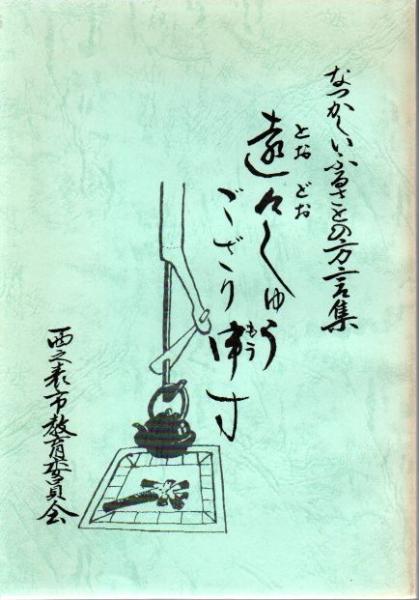 なつかしいふるさとの方言集
遠々しゅう
とお どお
ござり申す
もう
西之表市教育委員会